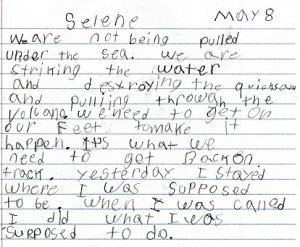 Selene May 8
We are not being pulled
under the sea. We are
striking the water
and destroying the quicksand
and pulling through the
volcano. we need to get on
our Feet tomake it
happen. It's what we
need to get Back on.
track. yesterday I stayed
where I was supposed
to be. when I was called
I did what I was
supposed to do.